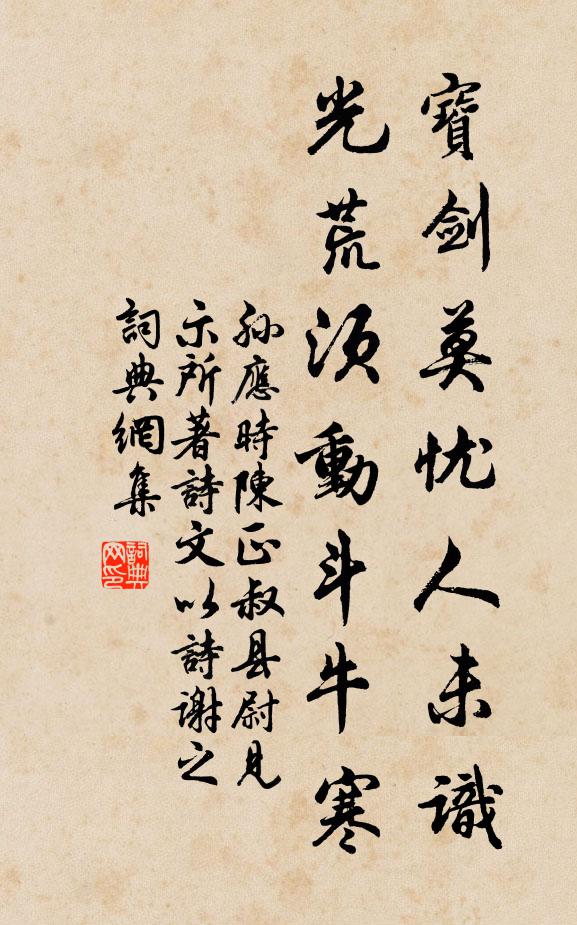 寶劍莫忧人未識
光荒须動斗牛寒
孙應時陳正叔县尉見
示所著詩文以詩謝之
詞典網集
詞典
网印